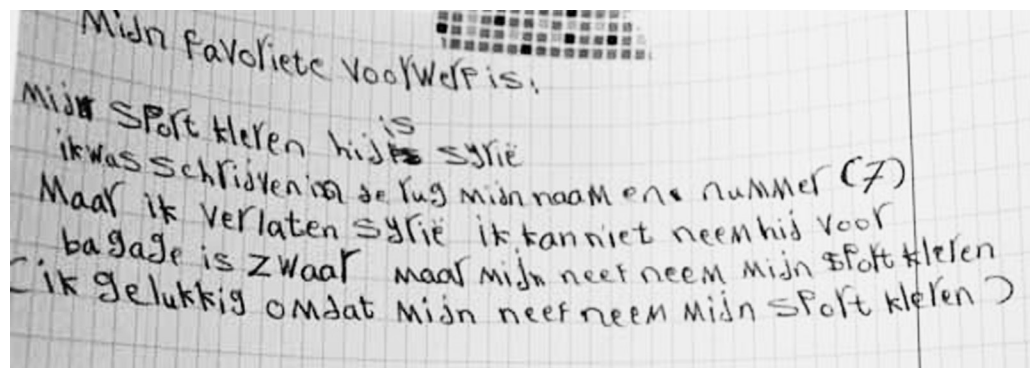 Mijn favoriete voorwerp is:
Mijn sport kleren hij is syrië
ik was schrijven in de rug mijn naam en nummer (7)
Maar ik verlaten syrië ik kan niet neem hij voor
bagage is zwaar maar mijn neef neem mijn sport kleren
(ik gelukkig omdat mijn neef neem mijn sport kleren)